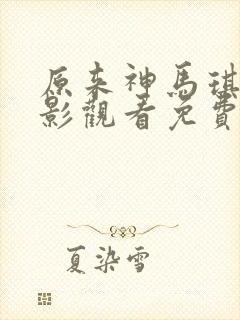 原來神馬琪
影觀看免費
夏染雪